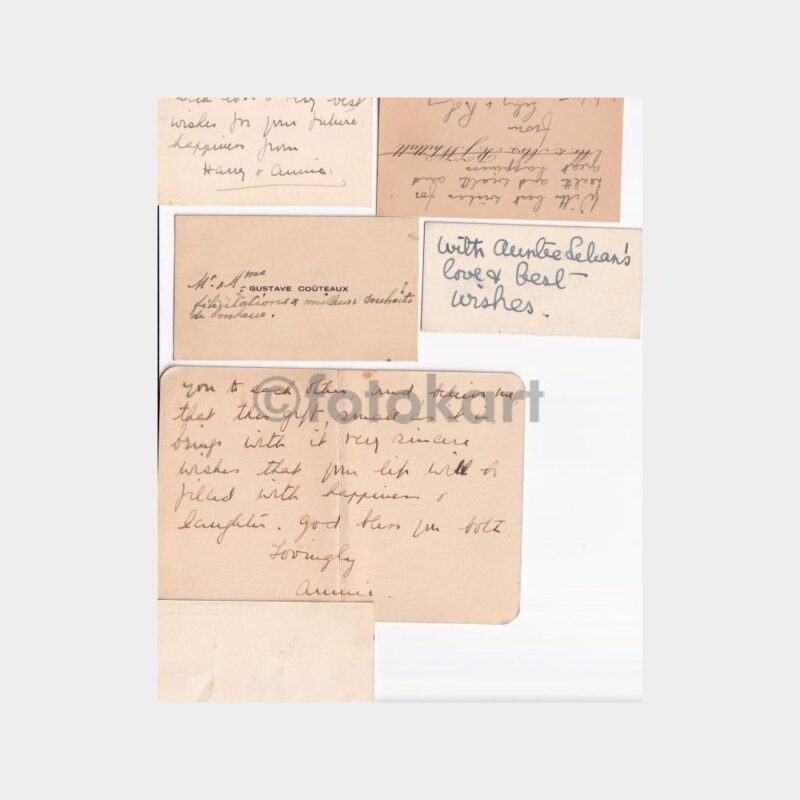 with love & very best
wishes for your future
happiness from
Harry & Annie.
With best wishes for
health and wealth and
great happiness
Mr & Mrs
from
Mr. & Mme
GUSTAVE COÛTEAUX
félicitations & meilleurs souhaits
de bonheur.
With Auntee
love & best
wishes.
you to each other and believe me
that this gift, small as it is,
brings with it very sincere
wishes that your life will be
filled with happiness &
laughter. God bless you both.
Lovingly
Annie.
©fotokart